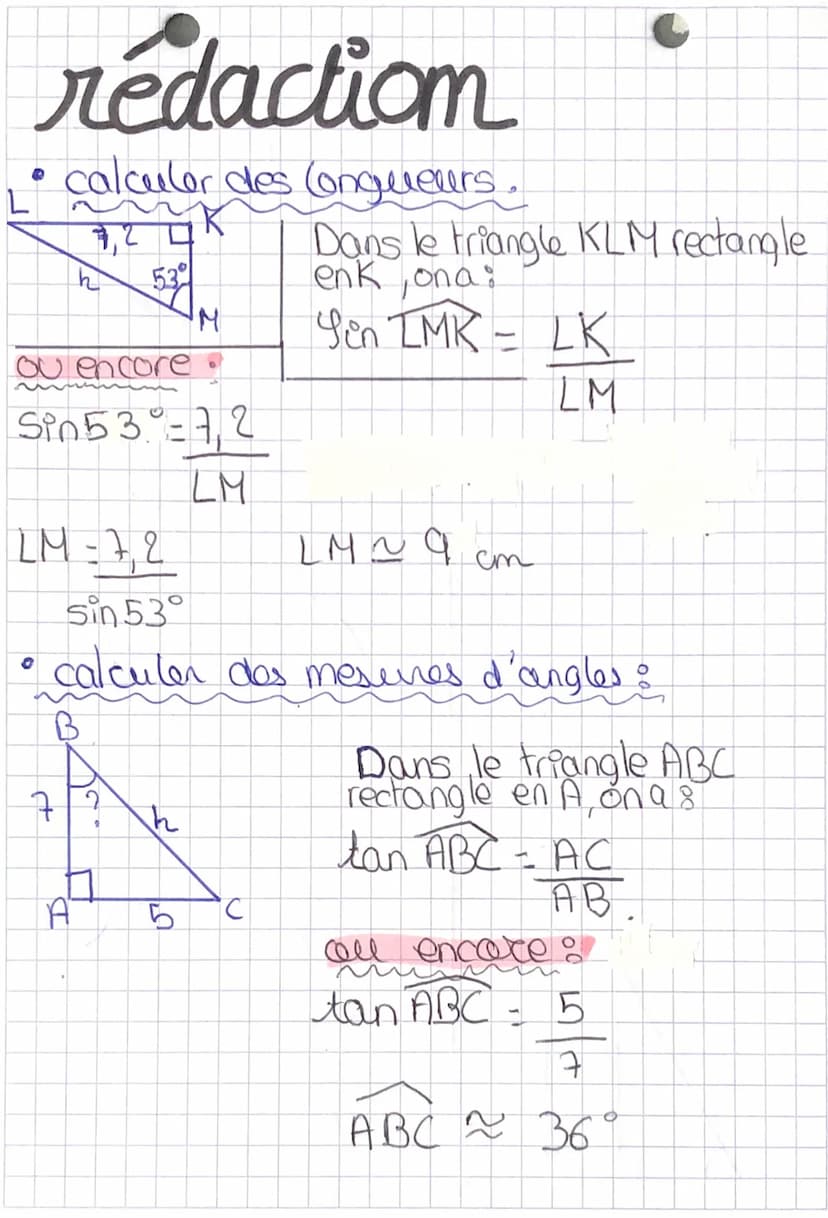 rédaction
• calculer des longueurs.
L
7,2
K
h
53°
M
Dans le triangle KLM rectangle
en K, on a :
Sin LMK = LK
LM
ou encore :
sin 53° = 7,2
LM
LM = 7,2
sin 53°
LM ≃ 9 cm
• calculer des mesures d'angles :
B
7
?
h
A
5
C
Dans le triangle ABC
rectangle en A, on a :
tan ABC = AC
AB.
ou encore :
tan ABC = 5
7
ABC ≈ 36°